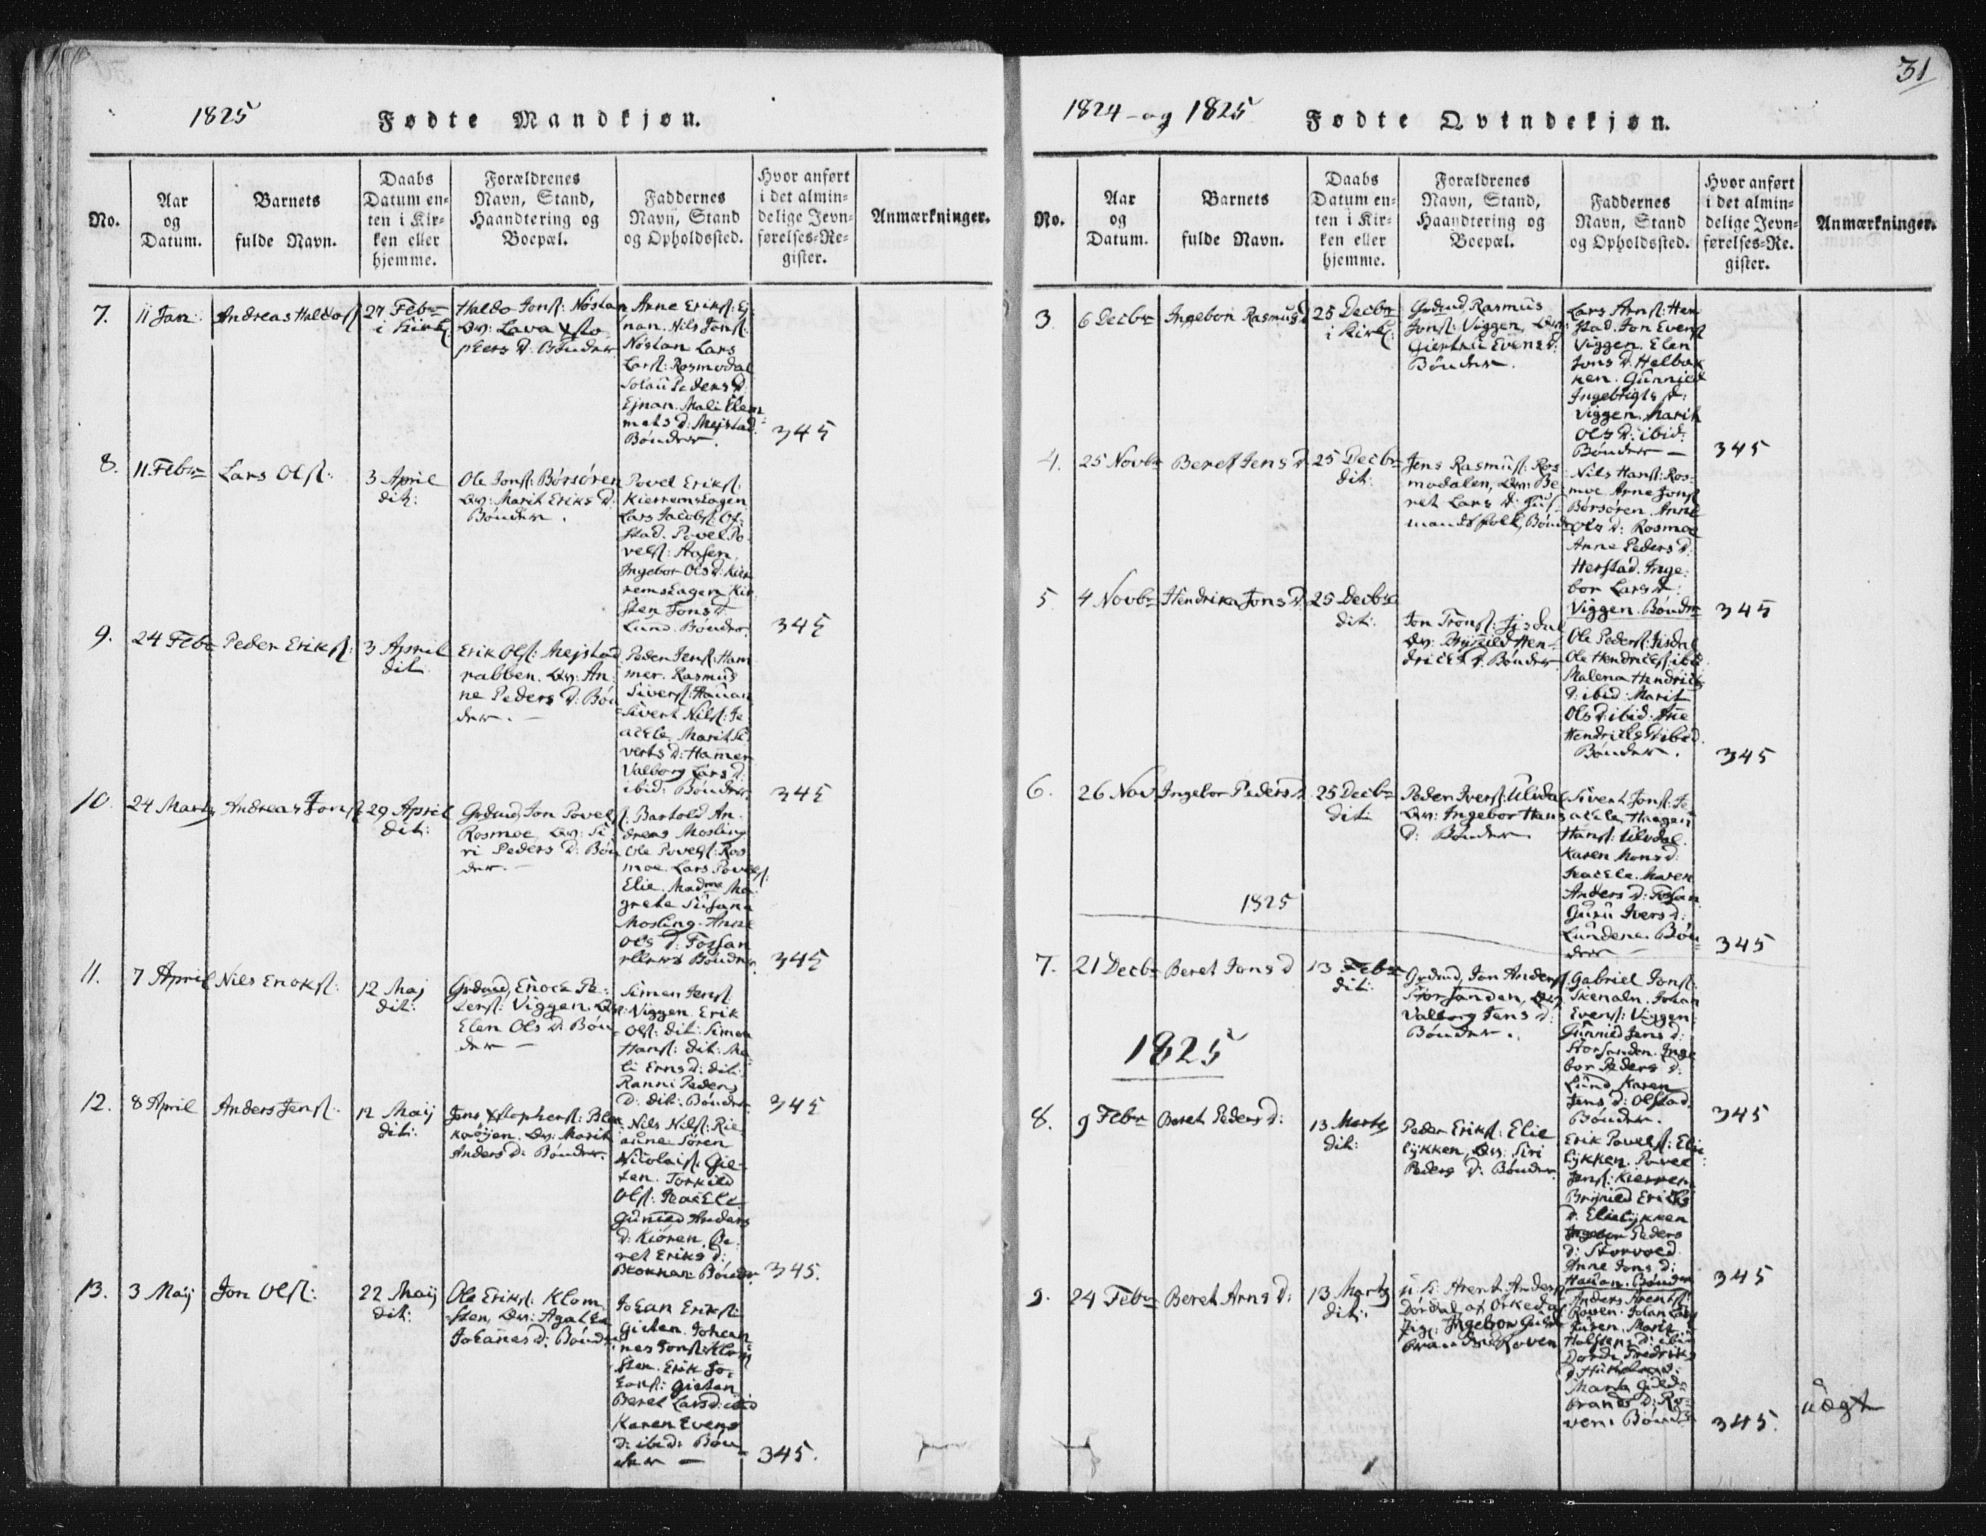 1825
Fødte Mandkjøn.
No.
Aar
og
Datum.
Barnets
fulde Navn.
Daabs
Datum en-
ten i Kir-
ken eller
hjemme.
Forældrenes
Navn, Stand,
Haandtering og
Boepæl.
Faddernes
Navn, Stand
og Opholdssted.
Hvor anført
i det almin-
delige Jevn-
førelses-Re-
gister.
Anmærkninger.
7.
11 Jan:
Andreas Haldosſ:
27 Febr
i Kirk:
Haldo Jonſ: Nöstan
Qv: Lava Xsto
phers D. Bönder
Arne Erikſ: Ej
nan. Nils Jonſ:
Nöstan Lars
Larſ: Rosmodal
Peders D.
Ejnan. Mali Klem
mets D: Mejstad.
Bönder.
345
8.
11 Febr
Lars Olſ:
3 April
dit:
Ole Jonſ: Börsören
Qv: Marit Eriks D:
Bönder.
Povel Erikſ:
Kierremshagen
Lars Jacobſ: Ol-
stad. Povel Po
velſ: Aasen.
Ingebor Ols D: Kier
remshagen, Kir
sten Jons D.
Lund. Bönder
345
9.
24 Febr
Peder Erikſ:
3 April
dit
Erik Olſ: Mejstad
rabben. Qv: An-
ne Peders D: Bön
der. —
Peder Jenſ: Ham
mer. Rasmus
Siverſ: Hauan
Sivert Nilſ: Je
acle, Marit Si
verts D: Hamer
Valborg Lars D
ibid: Bönder.
345
10.
24 Marty
Andreas Jonſ:
29 April
dit:
Grdmd, Jon Povelſ:
Rosmoe, Qv: Si-
ri Peders D: Bön
der. —
Bartold An-
dreas Mosling
Ole Povelſ: Ros
moe. Lars Povelſ:
Elie. Madme Ma
grete Susana
Mosling. Anne
Ols D: Fossan
Bönder.
345
11.
7 April
Nils Enokſ:
12 Maj
dit:
Grdmd, Enock Pe-
terſ: Viggen. Qv:
Elen Ols D: Bön
der —
Simen Jenſ:
Viggen. Erik
Olſ: dit: Simen
Hanſ: dit: Ma
li Erns D: dit:
Ranni Peders
D: dit: Bönder
345
12.
8 April
Anders Jenſ:
12 Maij
dit:
Jens Xstopherſ: Blok
kröyen. Qv: Marit
Anders D: Bönder.
Nils Nilſ: Rie
aune Sören
Nicolaiſ: Gie-
ten. Torkild
Olſ: Jeacle
Gunild Anders
D: Kiören. Be-
ret Eriks D:
Blokhan Bönder
345.
13.
3 Maij
Jon Olſ:
22 Maij
dit:
Ole Erikſ: Klom
sten, Qv: Agathe
Johanes D: Bönder
Johan Erikſ:
Gieten. Johan
nes Jonſ: Klom
sten. Erik Jo-
hanſ: Gieten
Beret Lars D: ibid
Karen Evens
D: ibid: Bön
der —
345.
31
1824 - og 1825
Fødte Qvindekjøn.
No.
Aar
og
Datum.
Barnets
fulde Navn.
Daabs
Datum en-
ten i Kir-
ken eller
hjemme.
Forældrenes
Navn, Stand,
Haandtering og
Boepæl.
Faddernes
Navn, Stand
og Opholdssted.
Hvor anført
i det almin-
delige Jevn-
førelses-Re-
gister.
Anmærkninger.
3.
6 Decbr
Ingebor Rasmus D
25 Decbr
i Kirk:
Grdmd Rasmus
Jonſ: Viggen, Qv:
Giertru Evens D:
Bönder.
Lars Arnſ: Her
stad. Jon Evenſ
Viggen. Elen
Jons D. Helbak
ken. Gunnild
Ingebrigts D:
Viggen. Marit
Ols D: ibid:
Bönder —
345
4.
25 Novbr
Beret Jens D
25 Decbr
dit:
Jens Rasmuſ: Ros
modalen, Qv: Be
ret Lars D: Huus
mandsfolk, Bönder
Nils Hanſ: Ros-
moe Arne Jonſ
Börsören. Anne
Ols D: Rosmoe
Anne Peders D.
Herstad. Inge-
bor Lars D:
Viggen. Bönder
345
5.
4 Novbr
Hendrika Jons D.
25 Decbr
dit:
Jon Tronſ: Fisdal
Qv: Brynild Hen-
dricks D: Bönder
Ole Pederſ: Fisdal
Ole Hendrickſ: ibid
Malena Hendricks
D: ibid: Marit
Ols D: ibid: Ane
Hendricks D ibid.
Bönder.
345
6.
26 Nov
Ingebor Peders D.
25 Decbr
dit:
Peder Iverſ: Ulvdal
Qv: Ingebor Hans
D: Bönder.
Sivert Jonſ: Je
acle, Haagen
Hanſ: Ulvdal.
Karen Mons D:
Jeacle. Maren
Anders D: Fossan
Guru Ivers D:
Lundene. Bön
der —
345
1825
7.
21 Decbr
Beret Jons D
13 Febr
dit:
Grdmd, Jon Anderſ
Storsanden, Qv:
Valborg Jens D:
Bönder.
Gabriel Jonſ:
Skenaln. Johan
Evenſ: Viggen:
Gunnild Jens D:
Storsanden. Inge
bor Peders D:
Lund Karen
Jens D: Olstad.
Bönder.
345
1825
8.
9 Febr
Beret Peders D:
13 Marty
dit:
Peder Erikſ: Elie
lykken, Qv: Siri
Peders D: Bönder
Erik Povelſ: Elie
lykken. Povel
Jenſ: Kierrem
Brynild Eriks
D: Elielykken
Ingebor Peders
D: Storvold.
Anne Jons D:
Hauan. Bönder
345
9.
24 Febr
Beret Arns D:
13 Marty
dit:
u: k: Arent Anderſ
Dordal af Orkedal
Pig: Ingebor Guld
brands D Roven
Anders Arentſ:
Roven. Johan Larſ
Marit
Halstens D: ibid
Dordi Fredriks
D:
Marta Guld-
brands D: Ro-
ven: Bönder
345.
uægt